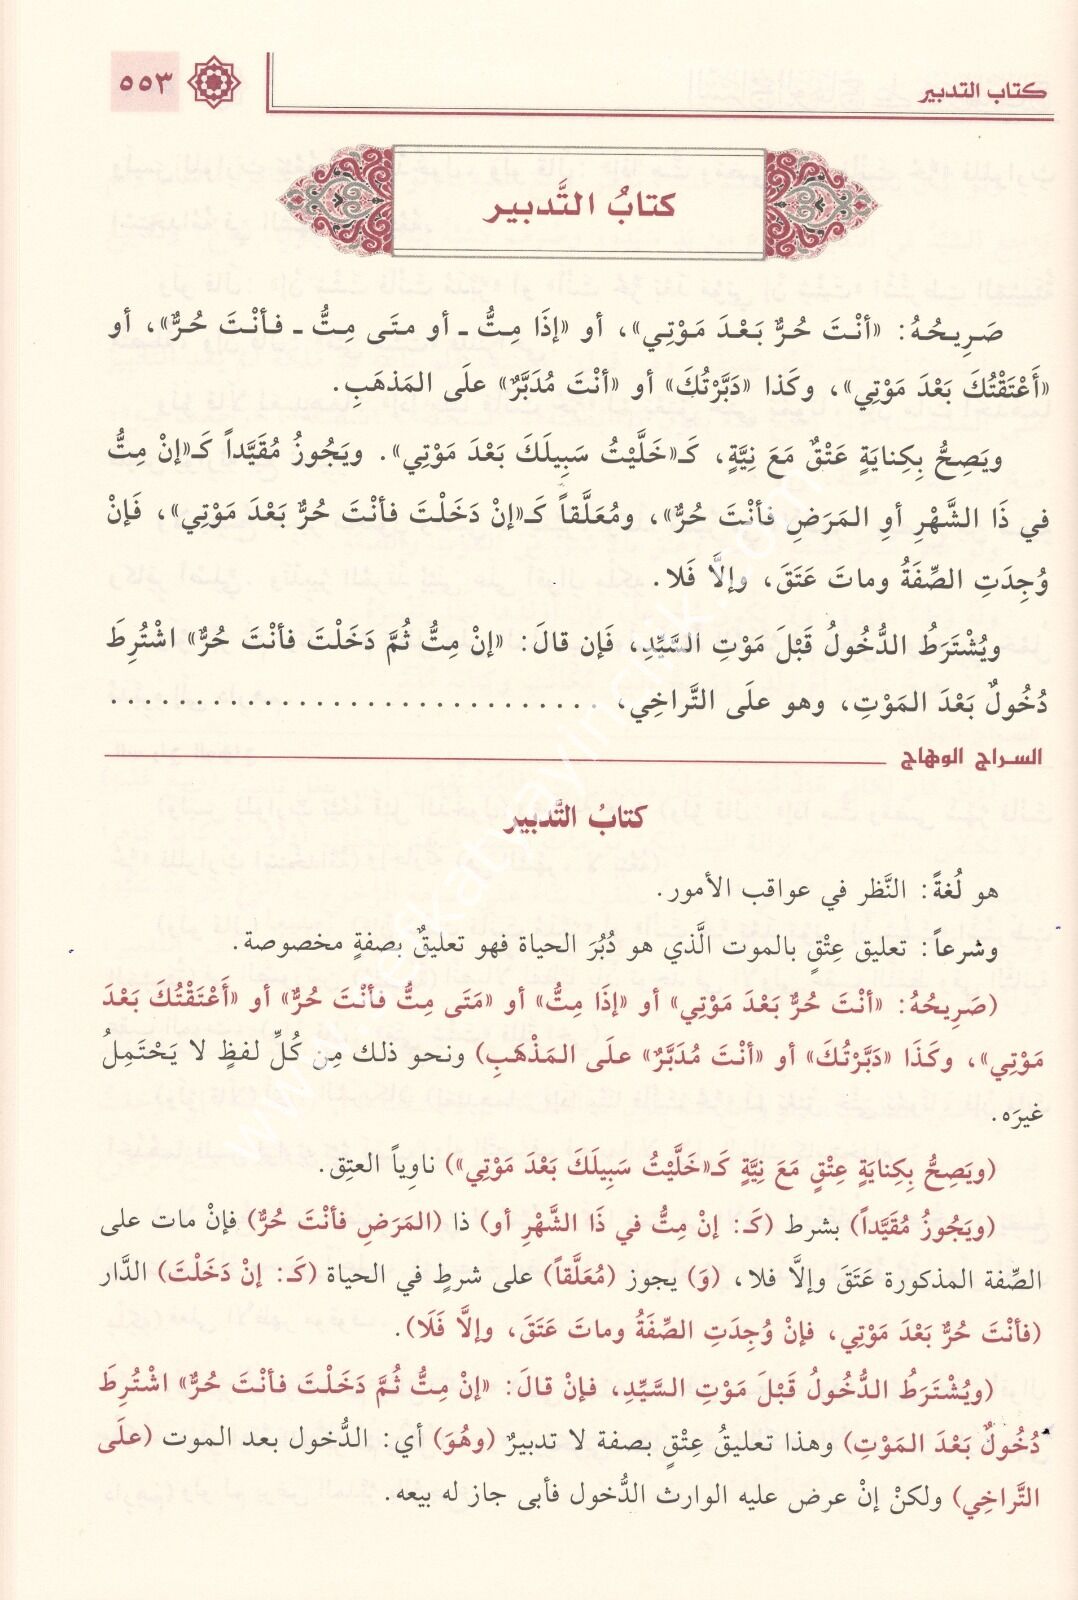 كتاب التدبير
٥٥٣
كتابُ التَّدبير
صَرِيحُهُ: «أنْتَ حُرٌّ بَعْدَ مَوْتِي»، أو «إذَا مِتُّ ـ أو متَى مِتُّ ـ فأنْتَ حُرٌّ»، أو
«أَعْتَقْتُكَ بَعْدَ مَوْتِي»، وكَذا «دَبَّرْتُكَ» أو «أنْتَ مُدَبَّرٌ» علَى المَذهَبِ.
ويَصِحُّ بِكِنايَةٍ عَتْقٌ مَعَ نِيَّةٍ، كَـ«خَلَّيْتُ سَبِيلَكَ بَعْدَ مَوْتِي». ويَجُوزُ مُقَيَّداً كَـ«إنْ مِتُّ
في ذَا الشَّهْرِ أوِ المَرَضِ فأنْتَ حُرٌّ»، ومُعَلَّقاً كَـ«إنْ دَخَلْتَ فأنْتَ حُرٌّ بَعْدَ مَوْتِي»، فَإنْ
وُجِدَتِ الصِّفَةُ وماتَ عَتَقَ، وإلَّا فَلا.
ويُشْتَرَطُ الدُّخُولُ قَبْلَ مَوْتِ السَّيِّدِ، فَإن قالَ: «إنْ مِتُّ ثُمَّ دَخَلْتَ فأنْتَ حُرٌّ» اشْتُرِطَ
دُخُولٌ بَعْدَ المَوْتِ، وهو علَى التَّراخِي، . . . . . . . . . . . . . . . . . . . . . . . . . . . . . .
السراج الوهاج
كتابُ التَّدبير
هو لُغةً: النَّظر في عواقب الأمور.
وشرعاً: تعليق عِتْقٍ بالموت الَّذي هو دُبُرَ الحياة فهو تعليقٌ بصفةٍ مخصوصة.
(صَرِيحُهُ: «أنْتَ حُرٌّ بَعْدَ مَوْتِي» أو «إذَا مِتُّ» أو «مَتَى مِتُّ فأنْتَ حُرٌّ» أو «أَعْتَقْتُكَ بَعْدَ
مَوْتِي»، وكَذَا «دَبَّرْتُكَ» أو «أنْتَ مُدَبَّرٌ» علَى المَذْهَبِ) ونحو ذلك مِن كُلِّ لفظٍ لا يَحْتَمِلُ
غيرَه.
(ويَصِحُّ بِكِنايَةِ عِتْقٍ مَعَ نِيَّةٍ كَـ«خَلَّيْتُ سَبِيلَكَ بَعْدَ مَوْتِي») ناوِياً العتِق.
(ويَجُوزُ مُقَيَّداً) بشرط (كَـ: إنْ مِتُّ في ذَا الشَّهْرِ أو) ذا (المَرَضِ فأنْتَ حُرٌّ) فإنْ مات على
الصِّفة المذكورة عَتَقَ وإلَّا فلا، (وَ) يجوز (مُعَلَّقاً) على شرطٍ في الحياة (كَـ: إنْ دَخَلْتَ) الدَّار
(فأنْتَ حُرٌّ بَعْدَ مَوْتِي، فإنْ وُجِدَتِ الصِّفَةُ وماتَ عَتَقَ، وإلَّا فَلَا).
(ويُشْتَرَطُ الدُّخُولُ قَبْلَ مَوْتِ السَّيِّدِ، فإنْ قالَ: «إنْ مِتُّ ثُمَّ دَخَلْتَ فأنْتَ حُرٌّ» اشْتُرِطَ
دُخُولٌ بَعْدَ المَوْتِ) وهذا تعليقُ عِتْقٍ بصفة لا تدبيرٌ (وهُوَ) أي: الدُّخول بعد الموت (علَى
التَّراخِي) ولكنْ إنْ عرض عليه الوارث الدُّخول فأبى جاز له بيعه.